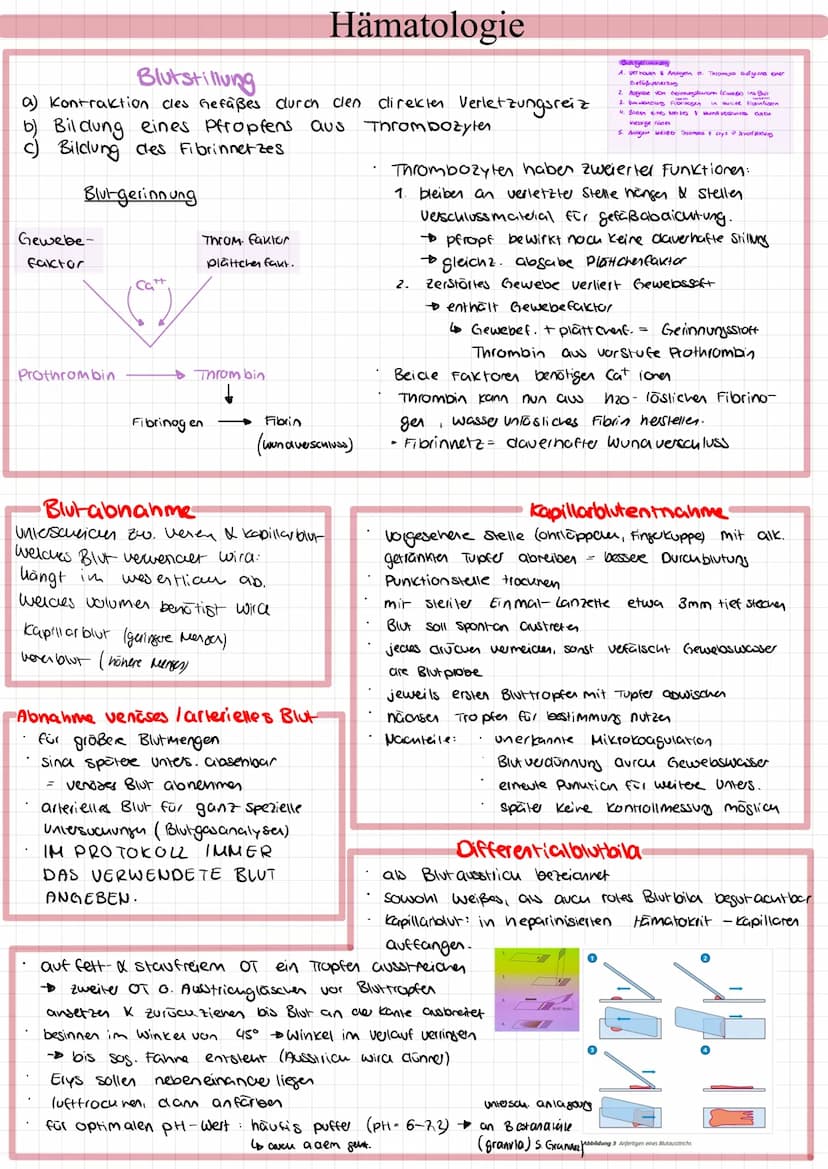 Hämatologie
Blutstillung
a) Kontraktion des Gefäßes durch den direkten Verletzungsreiz
b) Bildung eines Pfropfens aus Thrombozyten
c) Bildung des Fibrinnetzes
Blutgerinnung
Gewebe-
faktor
Throm. Faktor
plättchen fakt.
Ca⁺⁺
Prothrombin → Thrombin
Fibrinogen → Fibrin
(Wundverschluss)
· Thrombozyten haben zweierlei Funktionen:
1. bleiben an verletzter Stelle hängen & stellen
Verschlussmaterial für gefäßabdichtung.
→ pfropf bewirkt noch keine dauerhafte Stillung
→ gleichz. abgabe Plättchenfaktor
2. zerstörtes Gewebe verliert Gewebssaft
→ enthält Gewebefaktor
↳ Gewebef. + plättchenf. = Gerinnungsstoff
Thrombin aus Vorstufe Prothrombin
· Beide Faktoren benötigen Ca⁺ ionen
· Thrombin kann nun aus h2o-löslichen Fibrino-
gen, wasserunlösliches Fibrin herstellen.
· Fibrinnetz = dauerhafter Wundverschluss
Blutabnahme
unterscheiden zw. Venen & Kapillarblut
welches Blut verwendet wird:
hängt im wesentlichen ab.
welches volumen benötigt wird
Kapillarblut (geringere Mengen)
venenblut (höhere Mengen)
Kapillarblutentnahme
· vorgesehene Stelle (ohrläppchen, Fingerkuppe) mit alk.
getränkten Tupfer abreiben = bessere Durchblutung
· Punktionsstelle trocknen
· mit steriler Einmal-Lanzette etwa 3mm tief stechen
· Blut soll spontan austreten
· jedes drücken vermeiden, sonst verfälscht Gewebswasser
die Blutprobe
· jeweils ersten Bluttropfen mit Tupfer abwischen
· nächster Tropfen für bestimmung nutzen
· Nachteile: · unerkannte Mikrokoagulation
Blutverdünnung durch Gewebswasser
· erneute Punktion für weitere Unters.
· später keine Kontrollmessung möglich
Abnahme venöses / arterielles Blut
· für größere Blutmengen
· sind spätere unters. absehbar
= venöses Blut abnehmen
· arterielles Blut für ganz spezielle
Untersuchungen (Blutgasanalysen)
· IM PROTOKOLL IMMER
DAS VERWENDETE BLUT
ANGEBEN.
Differentialblutbild
· als Blutausstrich bezeichnet
· sowohl weißes, als auch rotes Blutbild begutachtbar
· Kapillarblut: in heparinisierten Hämatokrit-Kapillaren
auffangen.
· auf fett- & staufreiem OT ein Tropfen ausstreichen
→ zweiter OT o. Ausstrichgläschen vor Bluttropfen
ansetzen & zurückziehen bis Blut an der Kante ausbreitet
· beginnen im Winkel von 45° → Winkel im verlauf verringern
→ bis sog. Fahne entsteht (Ausstrich wird dünner)
· Erys sollen nebeneinander liegen
· lufttrocknen, dann anfärben
· für optimalen pH-Wert: häufig puffer (pH = 6-7,2) →
↳ auch a dem geht.
untersch. anlagerung
an Bestandteile
(granula) s. Granulo
1
2
3
4
Abbildung 3 Anfertigen eines Blutausstrichs